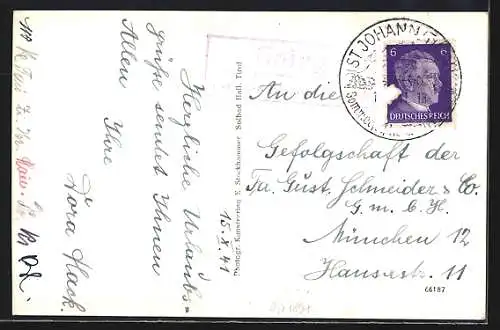 Herzliche Urlaubs-
grüße sendet Ihnen
Allen
Ihre
Dora Hack.
15. X. 41
Photogr. Kunstverlag W. Stockhammer Solbad Hall, Tirol
ST. JOHANN
Sommer
6 6
DEUTSCHES REICH
An die
Gefolgschaft der
Fa. Gust. Schneider & Co.
G. m. b. H.
München 12
Hansastr. 11
C6187